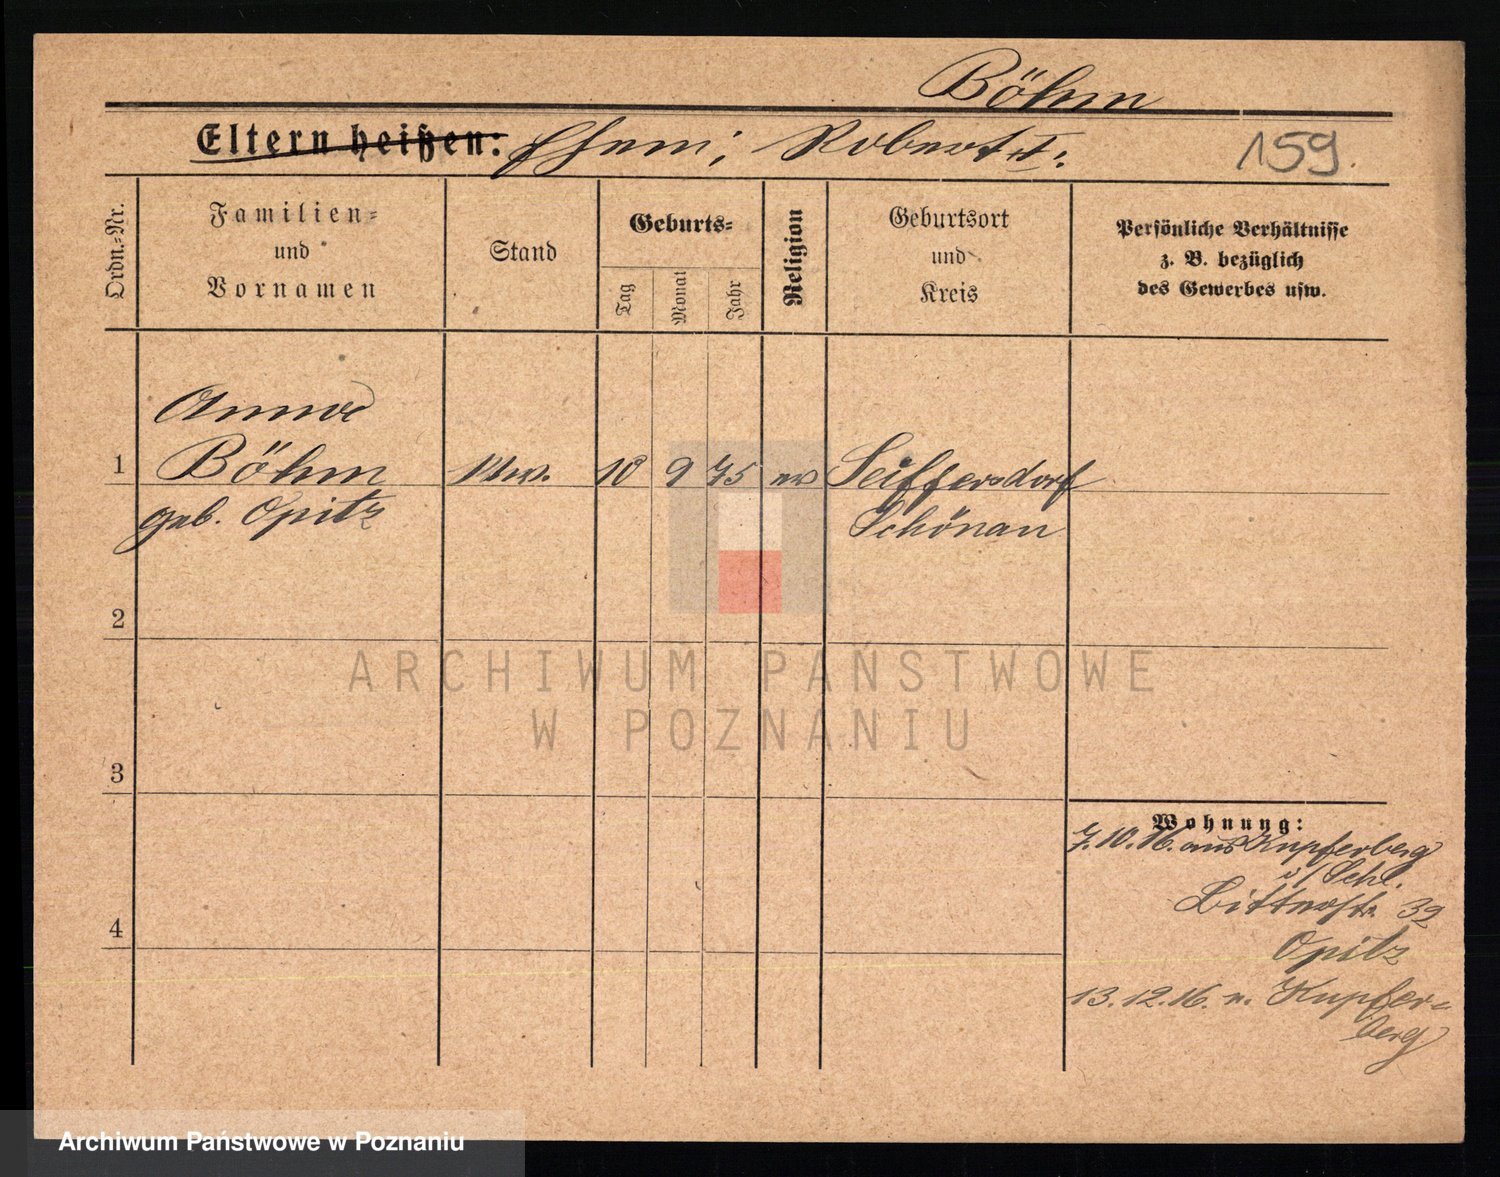 Böhm
Eltern heißen: Ehem: Robert †.
159.
Ordn.-Nr.
Familien-
und
Vornamen
Stand
Geburts-
Tag
Monat
Jahr
Religion
Geburtsort
und
Kreis
Persönliche Verhältnisse
z. B. bezüglich
des Gewerbes usw.
Anna
1 Böhm Wwe. 10 9 75 ev Seiffersdorf
geb. Opitz Schönau
2
ARCHIWUM PAŃSTWOWE
W POZNANIU
3
Wohnung:
7.10.16. aus Kupferberg
i/Schl.
Bitterstr. 32
4
Opitz
13.12.16. n. Kupfer-
berg
Archiwum Państwowe w Poznaniu